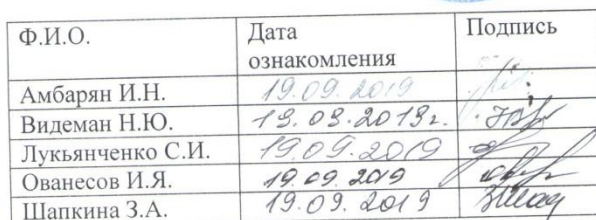 Ф.И.О. Дата ознакомления Подпись
Амбарян И.Н. 19.09.2019
Видеман Н.Ю. 19.09.2019г.
Лукьянченко С.И. 19.09.2019
Ованесов И.Я. 19.09.2019
Шапкина З.А. 19.09.2019